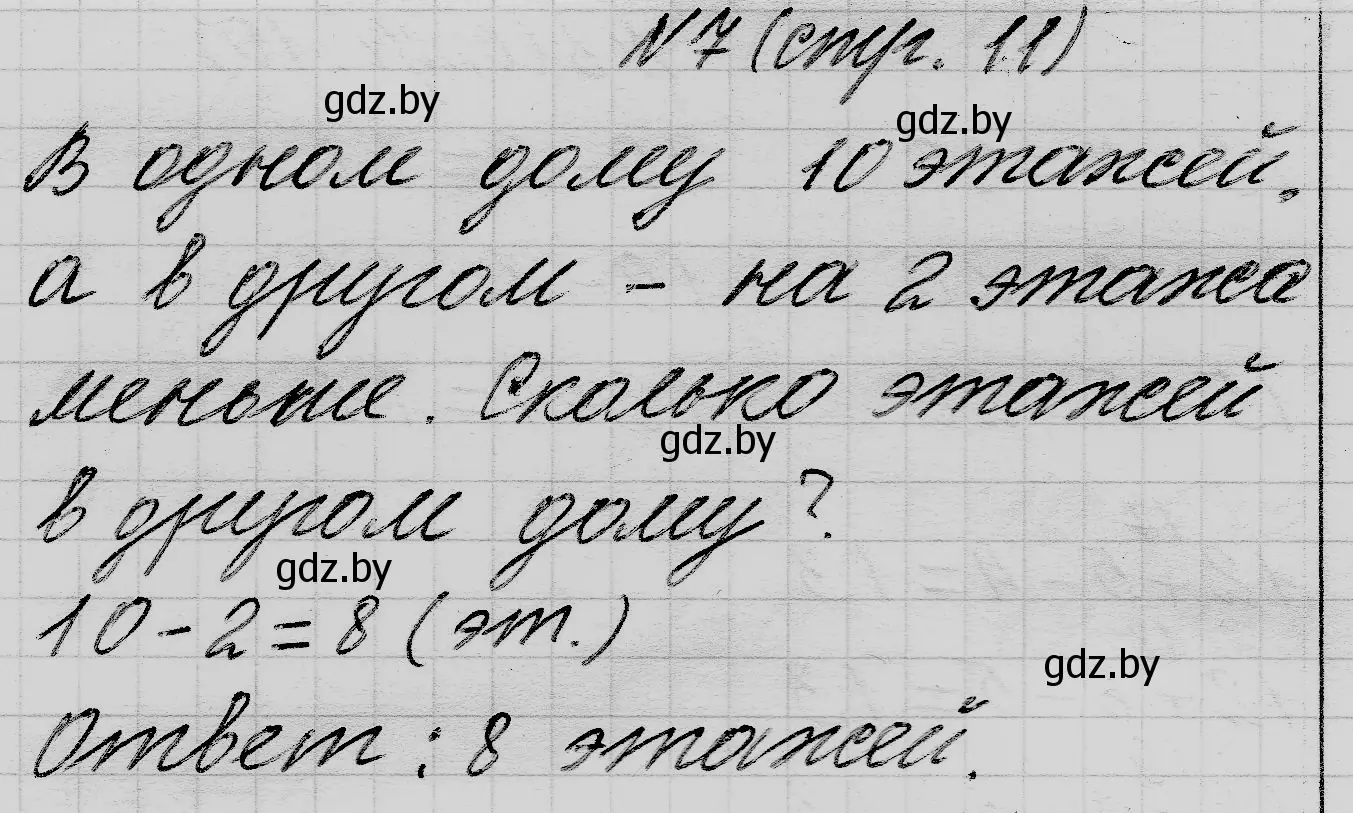 №7 (стр. 11)
gdz.by
gdz.by
В одном дому 10 этажей,
а в другом - на 2 этажа
меньше. Сколько этажей
gdz.by
в другом дому?
gdz.by
10-2=8 (эт.)
gdz.by
Ответ: 8 этажей.